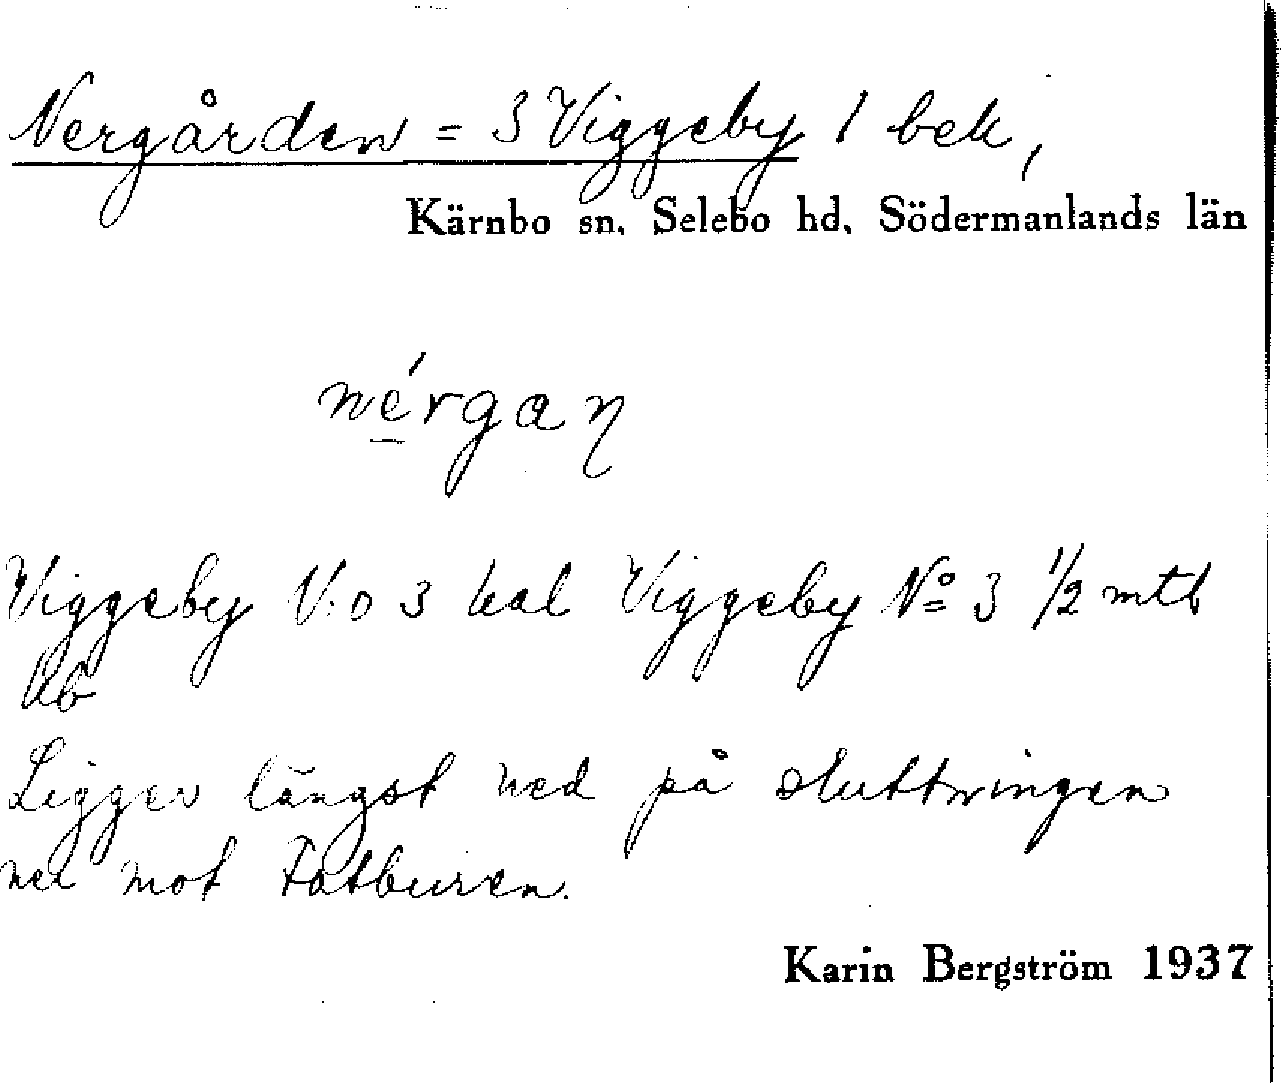 Nergården = 3 Viggeby 1 bek,
Kärnbo sn. Selebo hd. Södermanlands län
nérgaŋ
Viggeby N:o 3 kal Viggeby Nº 3 1/2 mtl
kb
Ligger längst ned på sluttningen
ner mot Fatburen.
Karin Bergström 1937